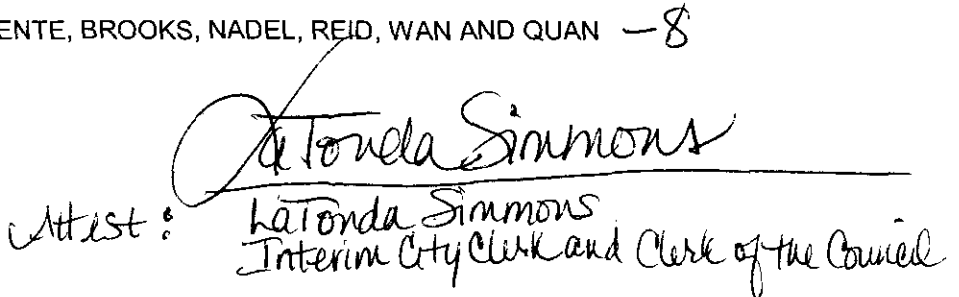 ENTE, BROOKS, NADEL, REID, WAN AND QUAN — 8
LaTonda Simmons
Attest: LaTonda Simmons
Interim City Clerk and Clerk of the Council